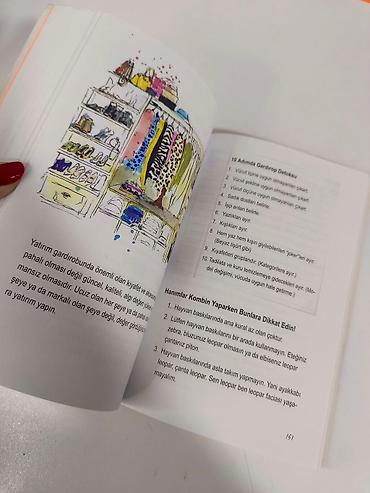 Yatırım gardırobunda önemli olan kıyafet ve aksesu
pahalı olması değil güncel, kaliteli, ağır değer
mansız olmasıdır. Ucuz olan her şeye ya da
şeye ya da markalı olan şeye değil, değer gördüğü
ra yatırım yapın.
10 Adımda Gardırop Detoksu
1. Vücut tipine uygun olmayanları çıkart.
2. Vücut şekline uygun olmayanları çıkart.
3. Vücut ölçüne uygun olmayanları çıkart.
4. Sadık dostları belirle.
5. İşgi
6. Yazlıkları ayır.
7. Kışlıkları ayır.
8. Hem yaz hem kışın giyilebilenleri "joker"leri ayır.
(Beyaz tişört gibi)
9. Kıyafetleri gruplandır. (Kategorilere ayır.)
10. Tadilata ve kuru temizlemeye gidecekleri ayır. (Mo-
del değişimi, vücuda uygun hale getirme.)
Hanımlar Kombin Yaparken Bunlara Dikkat Edin!
1. Hayvan baskılarında ana kural az olan çoktur.
2. Lütfen hayvan baskılarını bir arada kullanmayın. Eteğiniz
zebra, bluzunuz leopar olmasın ya da elbiseniz leopar
çantanız piton.
3. Hayvan baskılarında asla takım yapmayın. Yani ayakkabı
leopar, çanta leopar. Sen leopar ben leopar faciası yaşa-
mayalım.
151